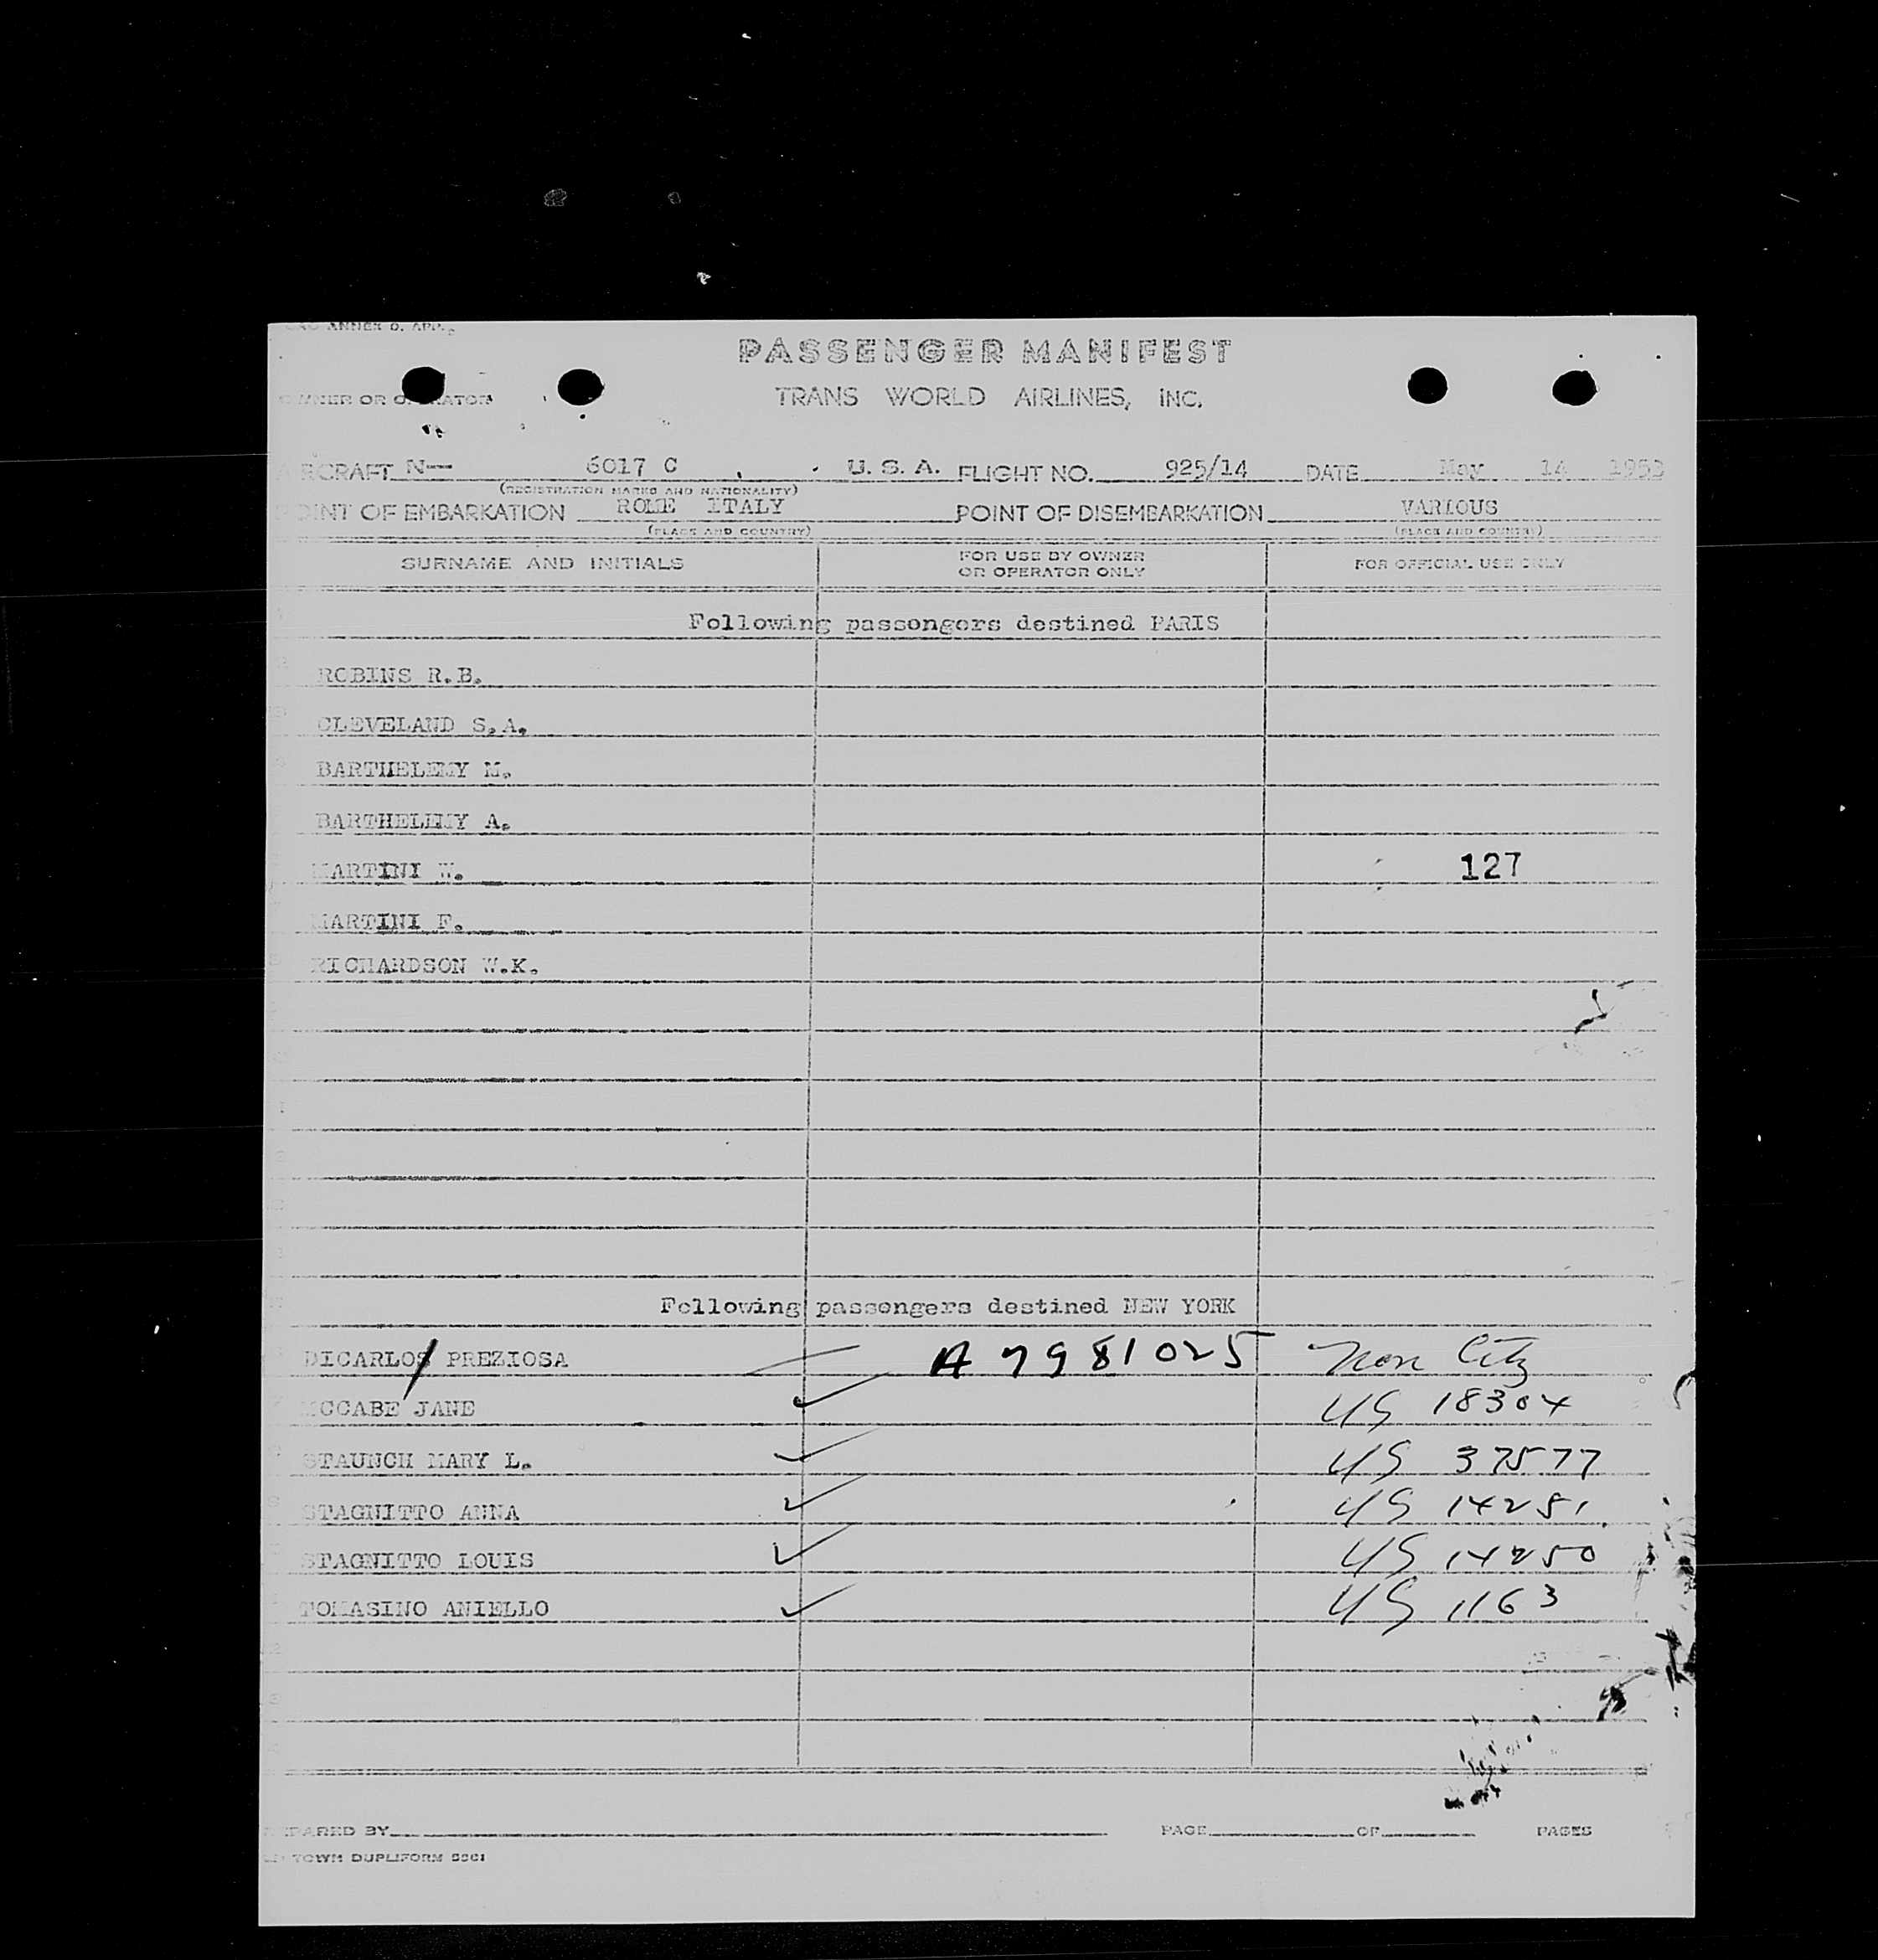 ANNEX 9, APP.
PASSENGER MANIFEST
OWNER OR OPERATOR TRANS WORLD AIRLINES, INC.
AIRCRAFT N-- 6017 C , . U. S. A. FLIGHT NO. 925/14 DATE May 14 1953
(REGISTRATION MARKS AND NATIONALITY)
POINT OF EMBARKATION ROME ITALY POINT OF DISEMBARKATION VARIOUS
(PLACE AND COUNTRY) (PLACE AND COUNTRY)
SURNAME AND INITIALS FOR USE BY OWNER OR OPERATOR ONLY FOR OFFICIAL USE ONLY
Following passengers destined PARIS
ROBINS R.B.
CLEVELAND S.A.
BARTHELEMY M.
BARTHELEMY A.
MARTINI W. 127
MARTINI F.
RICHARDSON W.K.
Following passengers destined NEW YORK
DICARLOS PREZIOSA A7981025 Non Citz
MCCABE JANE US 18304
STAUNCH MARY L. US 37577
STAGNITTO ANNA US 14251
STAGNITTO LOUIS US 14250
TOMASINO ANIELLO US 1163
PREPARED BY PAGE OF PAGES
TOWN DUPLIFORM